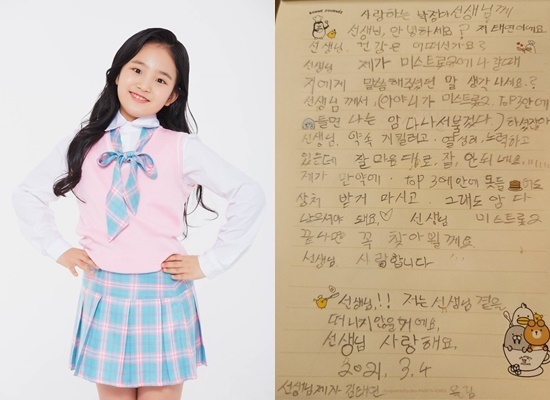 사랑하는 박정아 선생님께
선생님, 안녕하세요? 저 태연이에요.
선생님 건강은 어떠신가요?
선생님 제가 미스트롯에 나갈때
저에게 말씀해주셨던 말 생각 나세요?
선생님께서, (아야 니가 미스트롯2 TOP3안에
들면 나는 암 다 나서불겄다) 하셨잖아
선생님 약속 지킬려고 열심히 노력하고
있는데 잘 마음대로 잘 안되네요
제가 만약에 TOP 3에 안에 못들어도
상처 받거 마시고 그래도 암 다
나으셔야 돼요♡ 선생님 미스트롯2
끝나면 꼭 찾아뵐께요
선생님 사랑합니다
선생님!! 저는 선생님 곁을
떠나지 않을거에요,
선생님 사랑해요.
2021. 3.4
선생님제자 김태연 올림